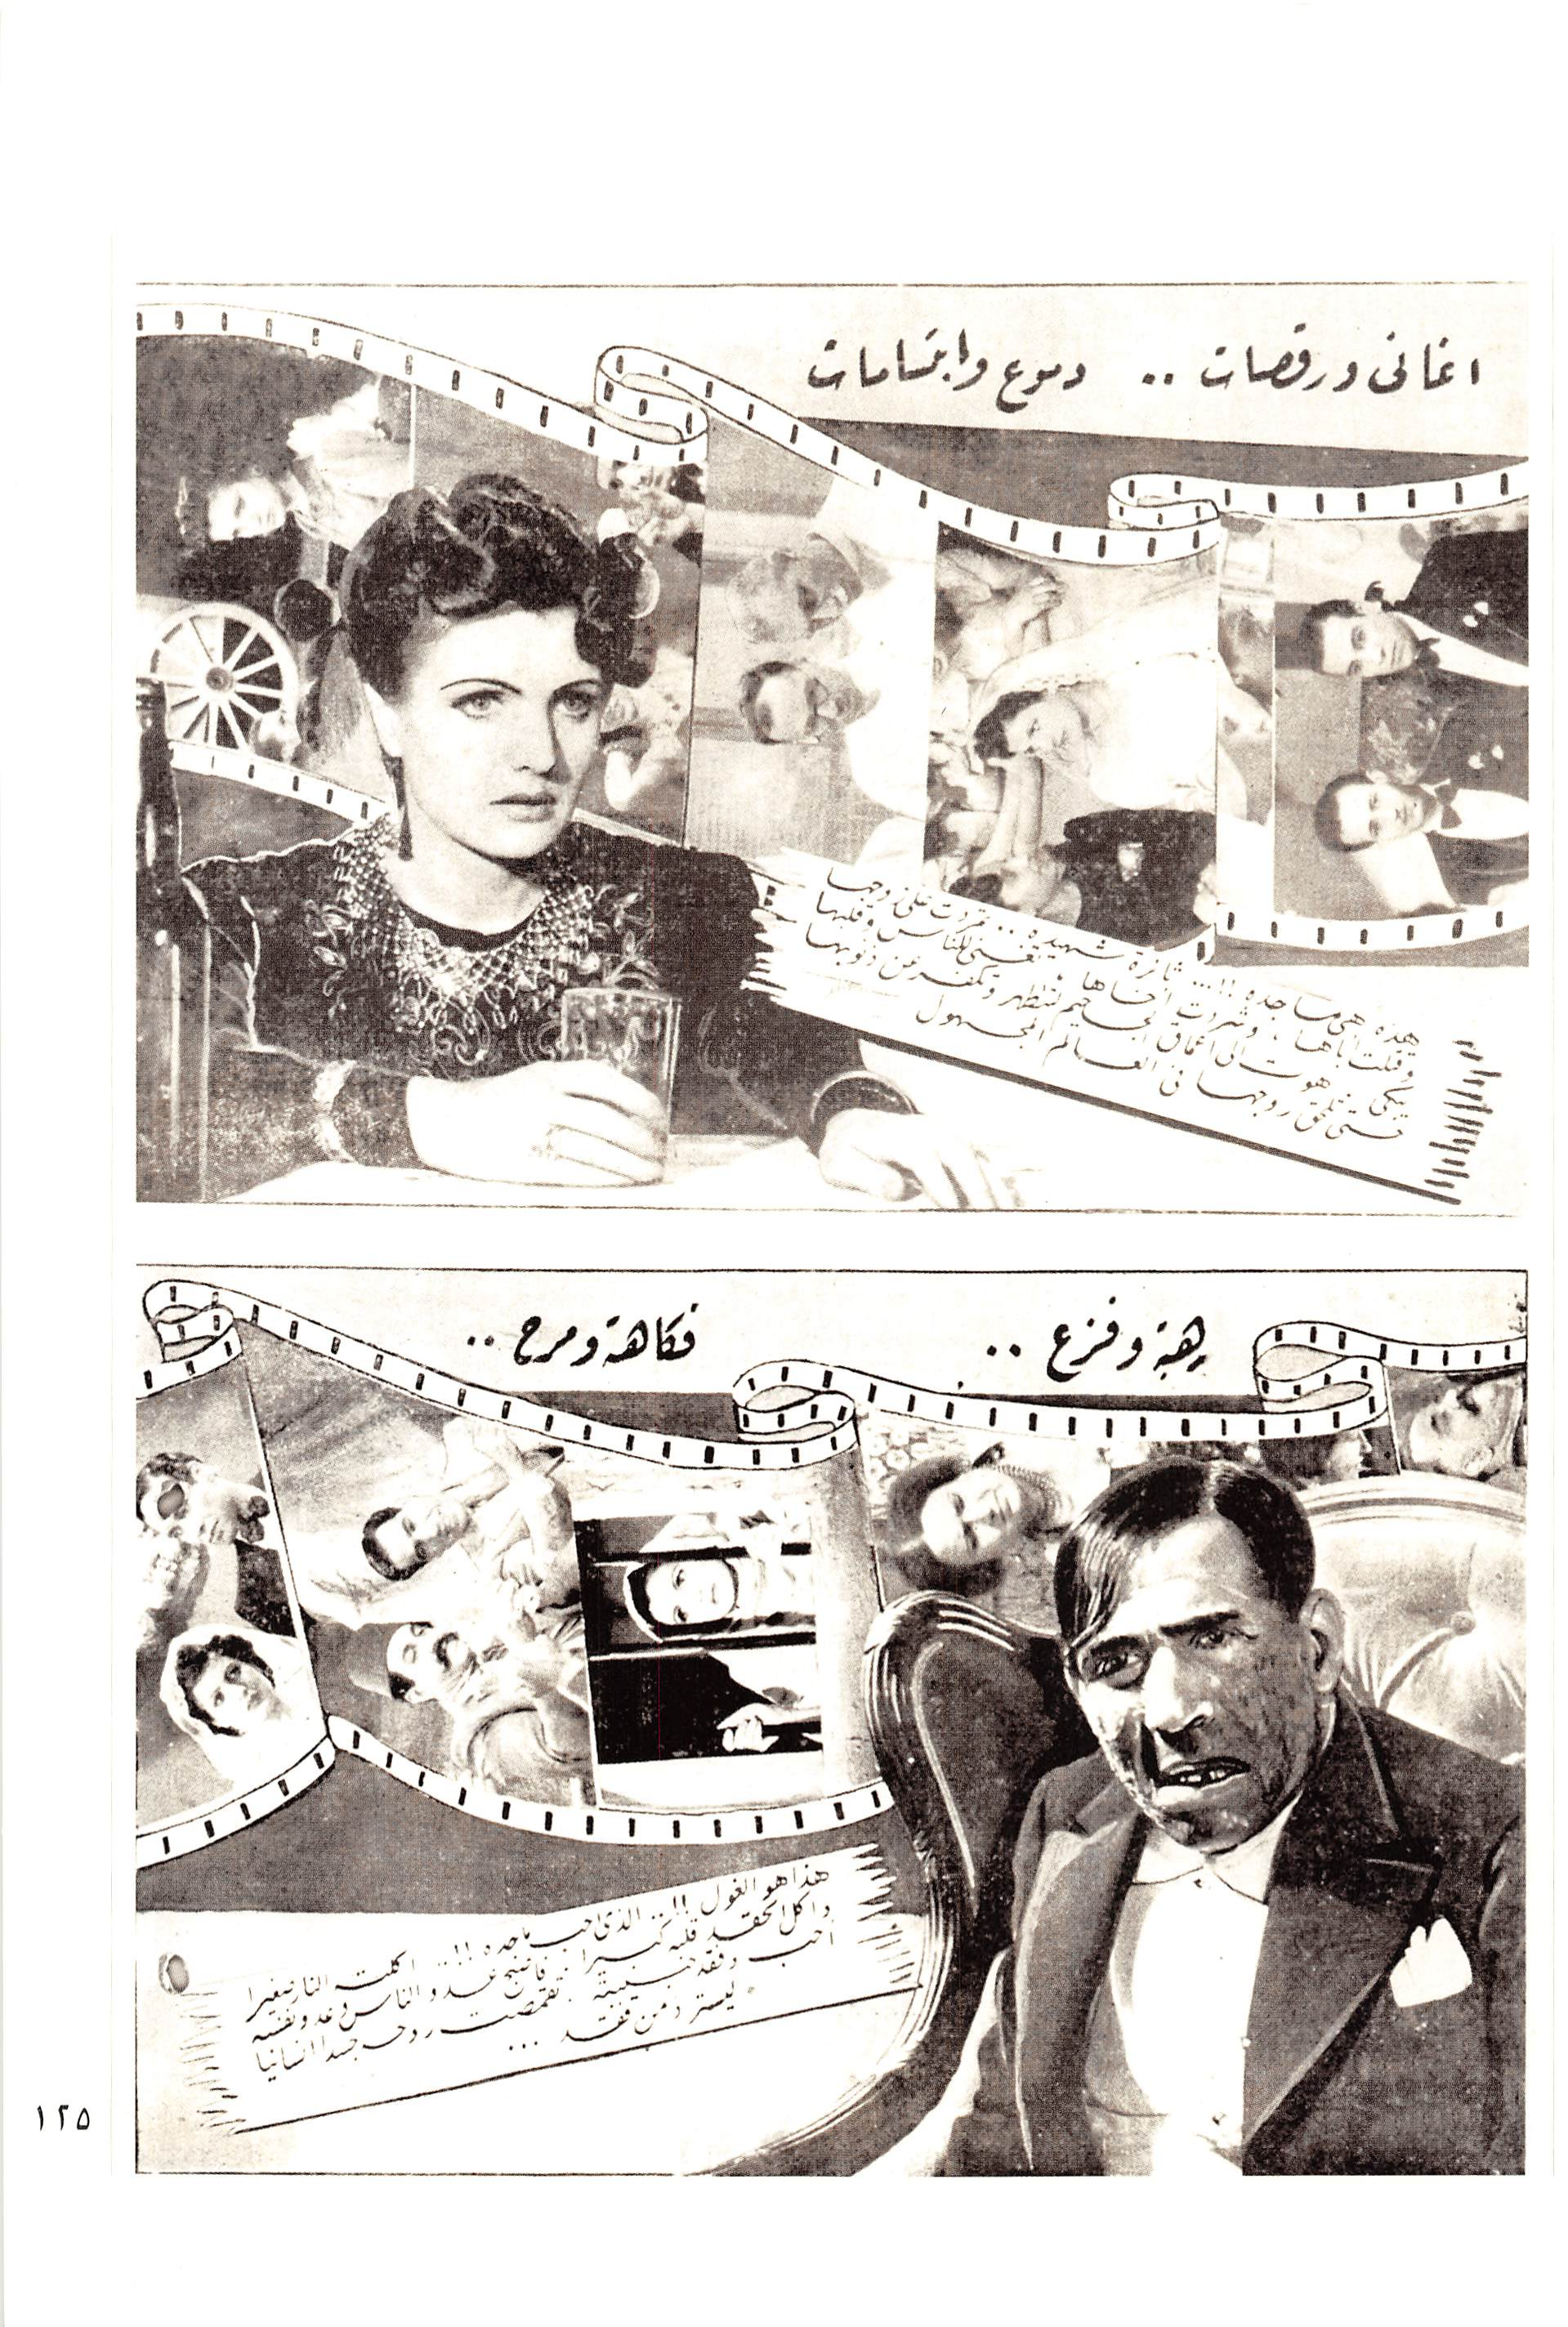 اغانى ورقصات .. دموع وابتسامات
هذه هى ماجده !!... ثائرة شهيده .. تمردت على زوجها
وقتلت أباها ، وشردت أخاها تغنى للناس وقلبها
يبكى هوت الى أعماق الجحيم لتتطهر وتكفر عن ذنوبها
حتى تلقى زوجها فى العالم المجهول
رهبة وفزع .. فكاهة ومرح ..
هذا هو الغول !!.. الذى احب ماجده !!... اكلت النار صغيرا
واكل الحقد قلبه كبيرا . فاصبح عدو الناس وعدو نفسه
أحب وفقد حبيبية . تقمصت روحه جسدا انسانيا
ليسترد من فقد ...
١٢٥